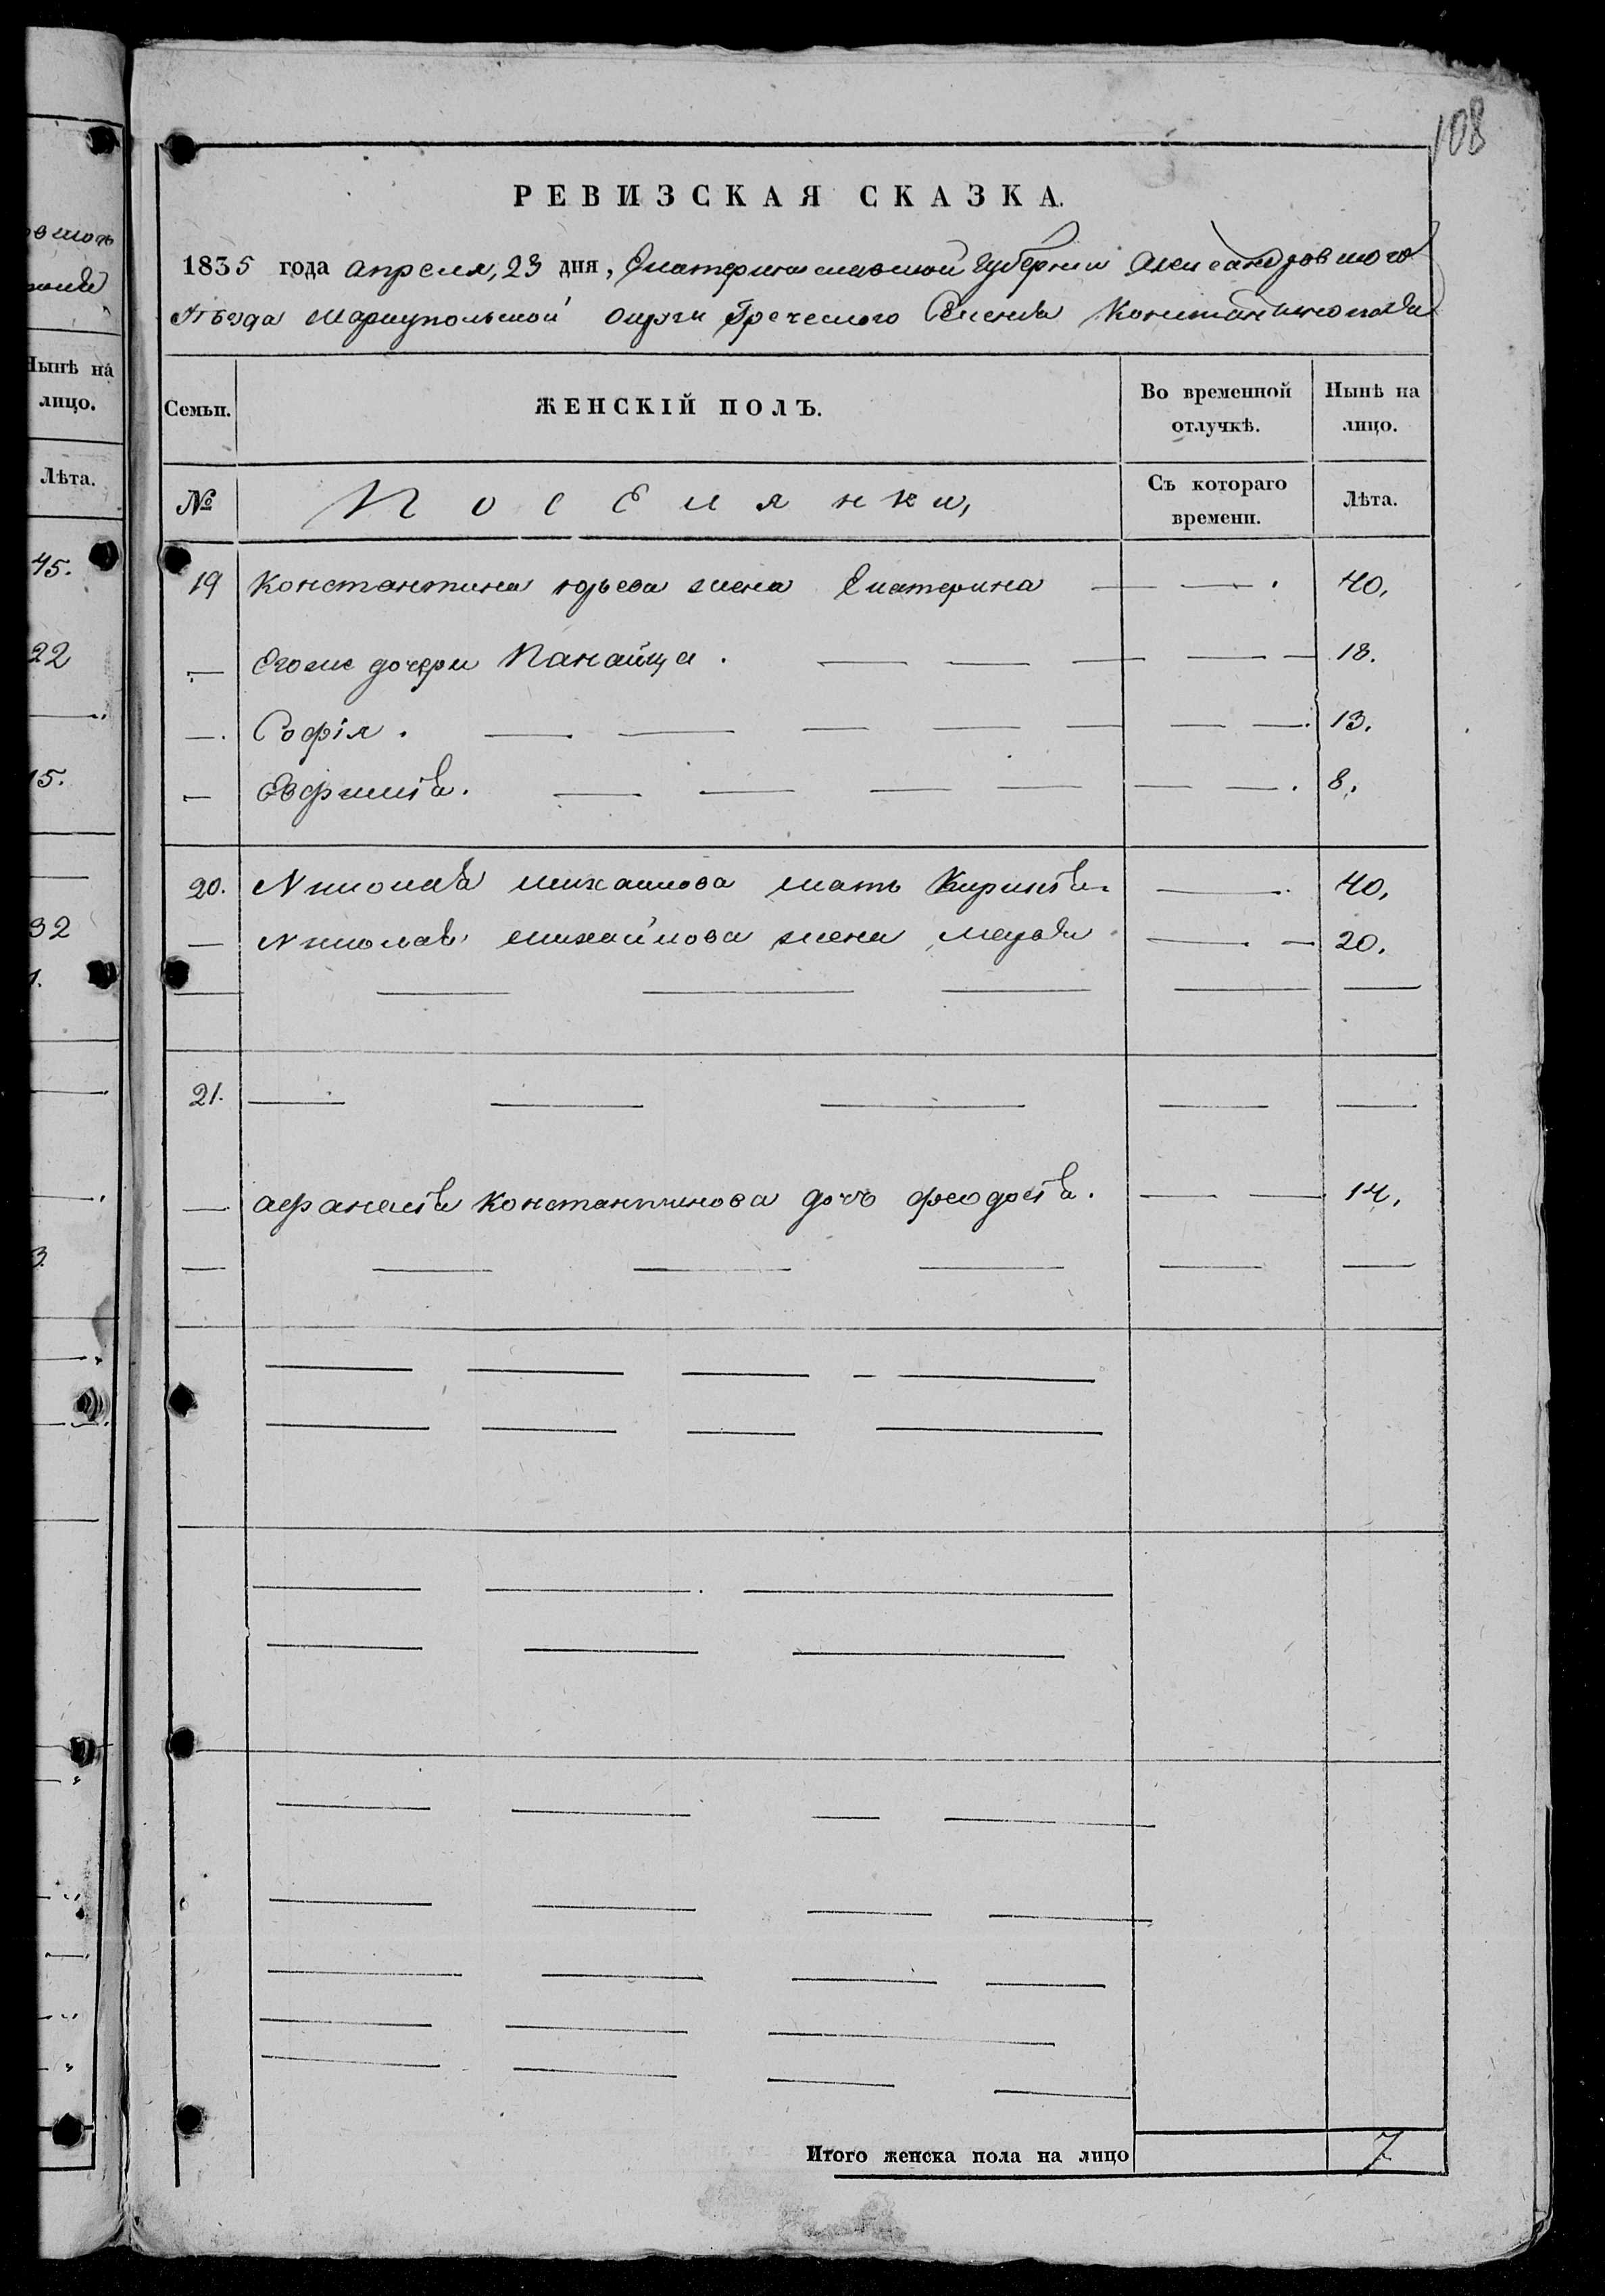 108
РЕВИЗСКАЯ СКАЗКА.
1835 года апреля, 23 дня, Екатеринославской Губернии Александровского
Уѣзда Мариупольской округи Греческого Селения Константинополя
Семьи.
ЖЕНСКІЙ ПОЛЪ.
Во временной отлучкѣ.
Нынѣ на лицо.
№
Поселянки,
Съ котораго времени.
Лѣта.
19 Константина юрьева жена Екатерина — — . 40.
— Егоже дочери Панаица . — — — — — 18.
— . Софія . — — — — — — — . 13.
— Евфимія . — — — — — — . 8.
20. Николая михаилова мать Кирикія — . 40.
— Николая михайлова жена — — 20.
— — — — — —
21. — — — — —
— афанасія Константинова дочь феодосія . — — 14.
— — — — — —
Итого женска пола на лицо 7
Нынѣ на
лицо.
Лѣта.
45.
22
15.
32
1.
3.